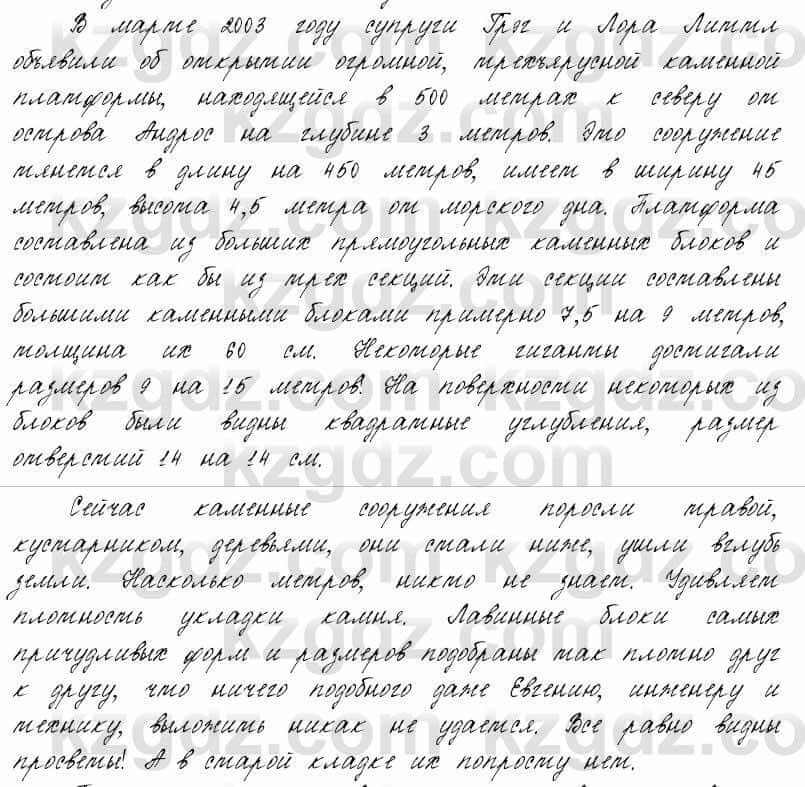 В марте 2003 году супруги Грэг и Лора Литтл
объявили об открытии огромной, трехъярусной каменной
платформы, находящейся в 500 метрах к северу от
острова Андрос на глубине 3 метров. Это сооружение
тянется в длину на 450 метров, имеет в ширину 45
метров, высота 4,5 метра от морского дна. Платформа
составлена из больших прямоугольных каменных блоков и
состоит как бы из трех секций. Эти секции составлены
большими каменными блоками примерно 7,5 на 9 метров,
толщина их 60 см. Некоторые гиганты достигали
размеров 9 на 15 метров! На поверхности некоторых из
блоков были видны квадратные углубления, размер
отверстий 14 на 14 см.
Сейчас каменные сооружения поросли травой,
кустарником, деревьями, они стали ниже, ушли вглубь
земли. Насколько метров, никто не знает. Удивляет
плотность укладки камня. Лавинные блоки самых
причудливых форм и размеров подобраны так плотно друг
к другу, что ничего подобного даже Евгению, инженеру и
технику, выложить никак не удается. Все равно видны
просветы! А в старой кладке их попросту нет.
kzgdz.com